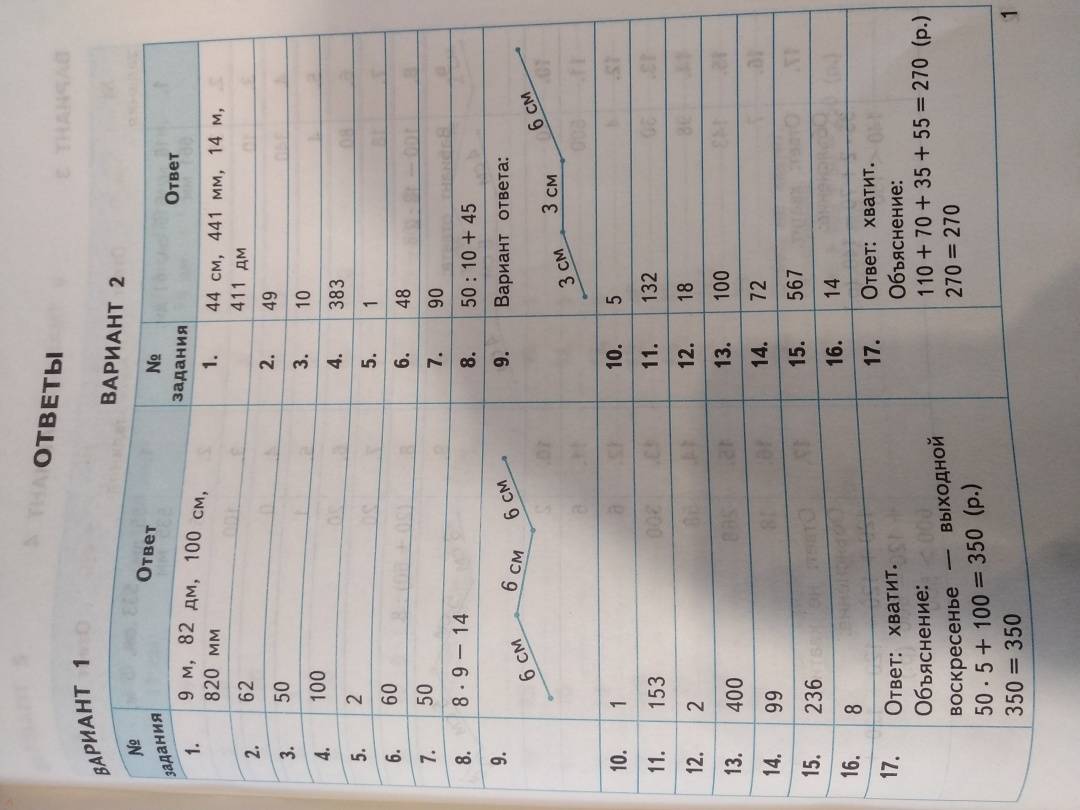 ОТВЕТЫ
ВАРИАНТ 1
№ задания
Ответ
1. 9 м, 82 дм, 100 см,
820 мм
2. 62
3. 50
4. 100
5. 2
6. 60
7. 50
8. 8 · 9 − 14
9. 6 см 6 см 6 см
10. 1
11. 153
12. 2
13. 400
14. 99
15. 236
16. 8
17. Ответ: хватит.
Объяснение:
воскресенье — выходной
50 · 5 + 100 = 350 (р.)
350 = 350
ВАРИАНТ 2
№ задания
Ответ
1. 44 см, 441 мм, 14 м,
411 дм
2. 49
3. 10
4. 383
5. 1
6. 48
7. 90
8. 50 : 10 + 45
9. Вариант ответа:
3 см 3 см 6 см
10. 5
11. 132
12. 18
13. 100
14. 72
15. 567
16. 14
17. Ответ: хватит.
Объяснение:
110 + 70 + 35 + 55 = 270 (р.)
270 = 270
1